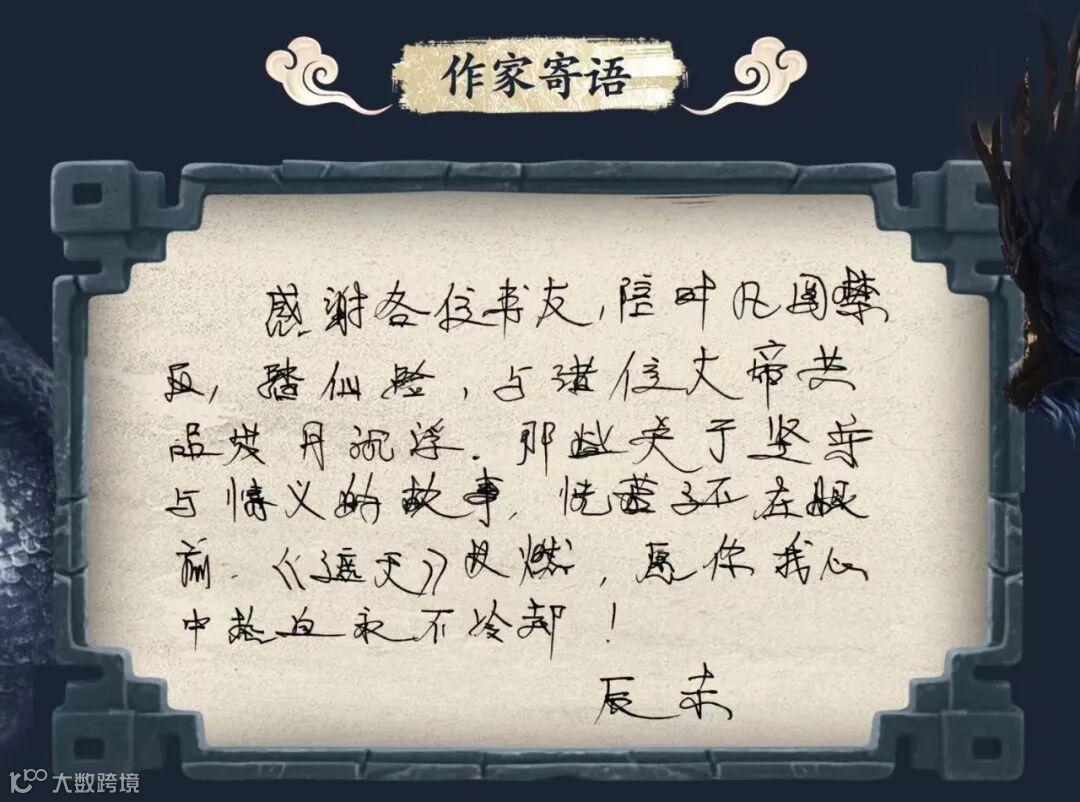 作家寄语
感谢各位书友,陪叶凡闯禁
区,踏仙路,与诸位大帝共
沉浮.那些关于坚守
与情义的故事,恍若 不在眼
前.《遮天》 燃,愿你我心
中热血永不冷却!
辰东
大数跨境